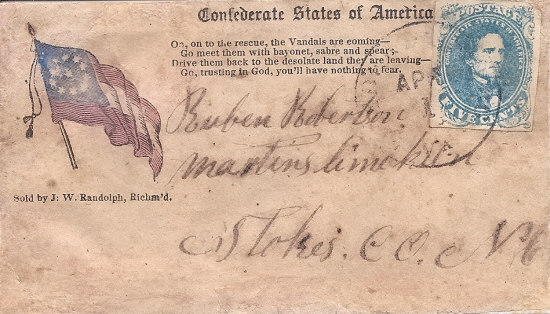 Confederate States of America
On, on to the rescue, the Vandals are coming—
Go meet them with bayonet, sabre and spear;
Drive them back to the desolate land they are leaving—
Go, trusting in God, you'll have nothing to fear.
POSTAGE
FIVE CENTS
APR
Reuben Robertson
Martins limekiln
Stokes. CO. NC
Sold by J. W. Randolph, Richm'd.